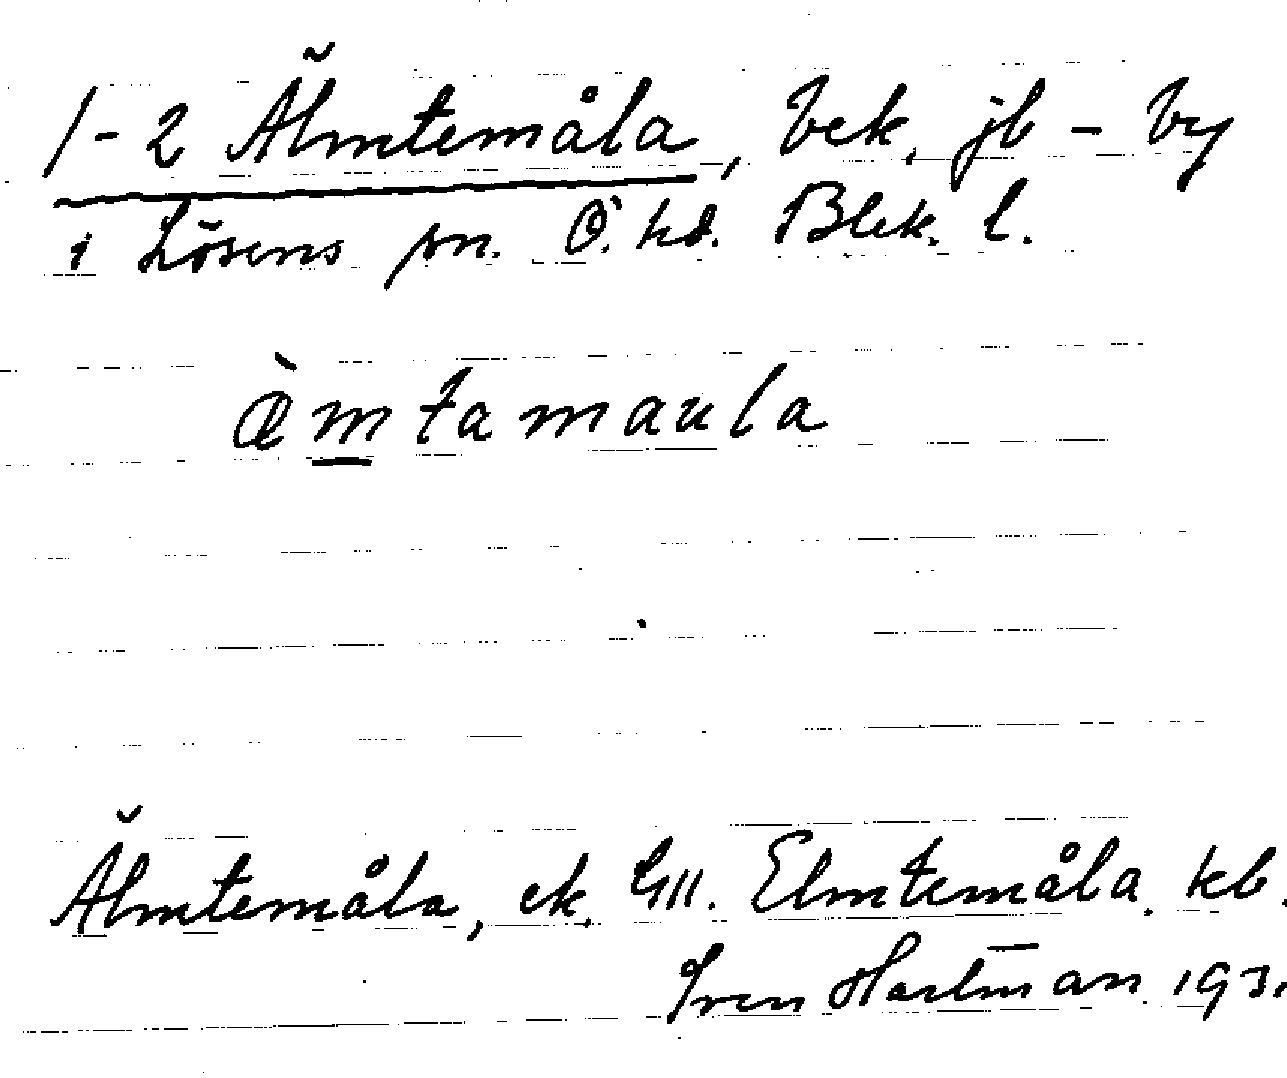 1-2 Älmtemåla, bek. jb - by
i Lösens sn. Ö. hd. Blek. l.
æ̀mtamaula
Älmtemåla, ek. GII. Elmtemåla. kb.
Sven Hartman 1931